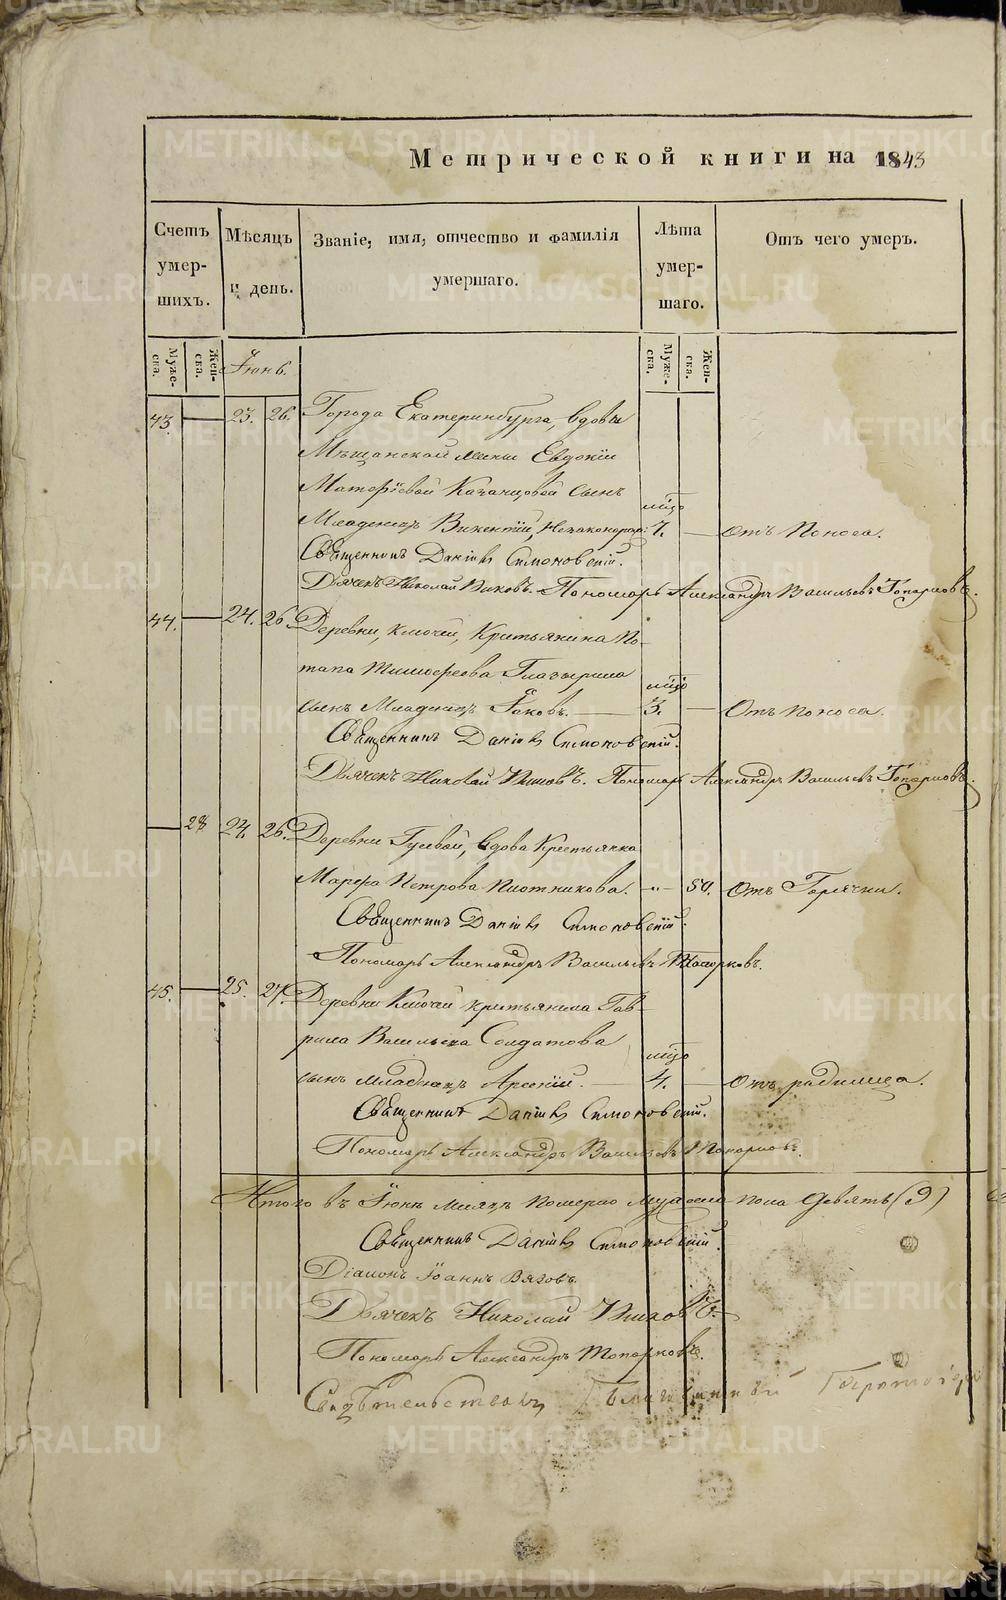 Метрической книги на 1843
Счетъ умер-шихъ.
Мѣсяцъ и день.
Званіе, имя, отчество и фамилія умершаго.
Лѣта умер-шаго.
Отъ чего умеръ.
Муже-ска.
Жен-ска.
Іюнь.
Муже-ска.
Жен-ска.
43. 23. 26. Города Екатеринбурга, вдовы
Мѣщанской жены Евдокіи
Матфіевой Казанцовой сынъ
мцо
Младенецъ Викентій, Незаконорож: 7. Отъ поноса.
Священникъ Даніилъ Симоновскій.
Дьячекъ Николай Пономарь Александръ Васильевъ Топорковъ.
44. 24. 26. Деревни, Ключей, Крестьянина По-
тапа Тимофеева Глазырина
мцо
сынъ Младенецъ Іаковъ. 3. Отъ поноса.
Священникъ Даніилъ Симоновскій.
Дьячекъ Николай Пономарь Александръ Васильевъ Топорковъ.
28 24. 26. Деревни Гусевой, вдова Крестьянка
Марфа Петрова Плотникова. 50. Отъ Горячки.
Священникъ Даніилъ Симоновскій.
Пономарь Александръ Васильевъ Топорковъ.
45. 25. 27. Деревни Ключей крестьянина Гав-
рила Васильева Солдатова
мцо
сынъ младенецъ Арсеній. 4. Отъ родимца.
Священникъ Даніилъ Симоновскій.
Пономарь Александръ Васильевъ Топорковъ.
Итого въ Іюнѣ месяцѣ померло мужеска пола девять (9)
Священникъ Даніилъ Симоновскій.
Діаконъ Іоаннъ Вязовъ
Дьячекъ Николай
Пономарь Александръ Топорковъ.
Свидѣтельствовалъ Благочинный
METRIKI.GASO-URAL.RU